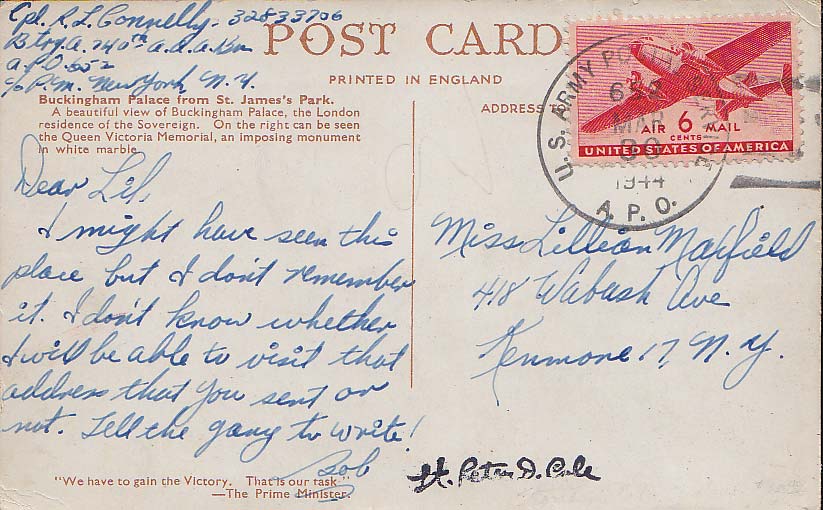 Cpl. R. L. Connelly - 32833706
Btry. A. 740th a.a.a. Bn
A.P.O. 652
c/o P.M. New York, N.Y.
POST CARD
PRINTED IN ENGLAND
Buckingham Palace from St. James's Park.
A beautiful view of Buckingham Palace, the London
residence of the Sovereign. On the right can be seen
the Queen Victoria Memorial, an imposing monument
in white marble.
Dear Lil,
I might have seen this
place but I don't remember
it. I don't know whether
I will be able to visit that
address that you sent or
not. Tell the gang to write!
Bob
"We have to gain the Victory. That is our task"
—The Prime Minister.
ADDRESS TO
U.S. ARMY
652
MAR
30
1944
A.P.O.
AIR 6 MAIL
CENTS
UNITED STATES OF AMERICA
Miss Lillian Maxfield
418 Wabash Ave
Kenmore 17, N.Y.
Lt. Peter D. Cole